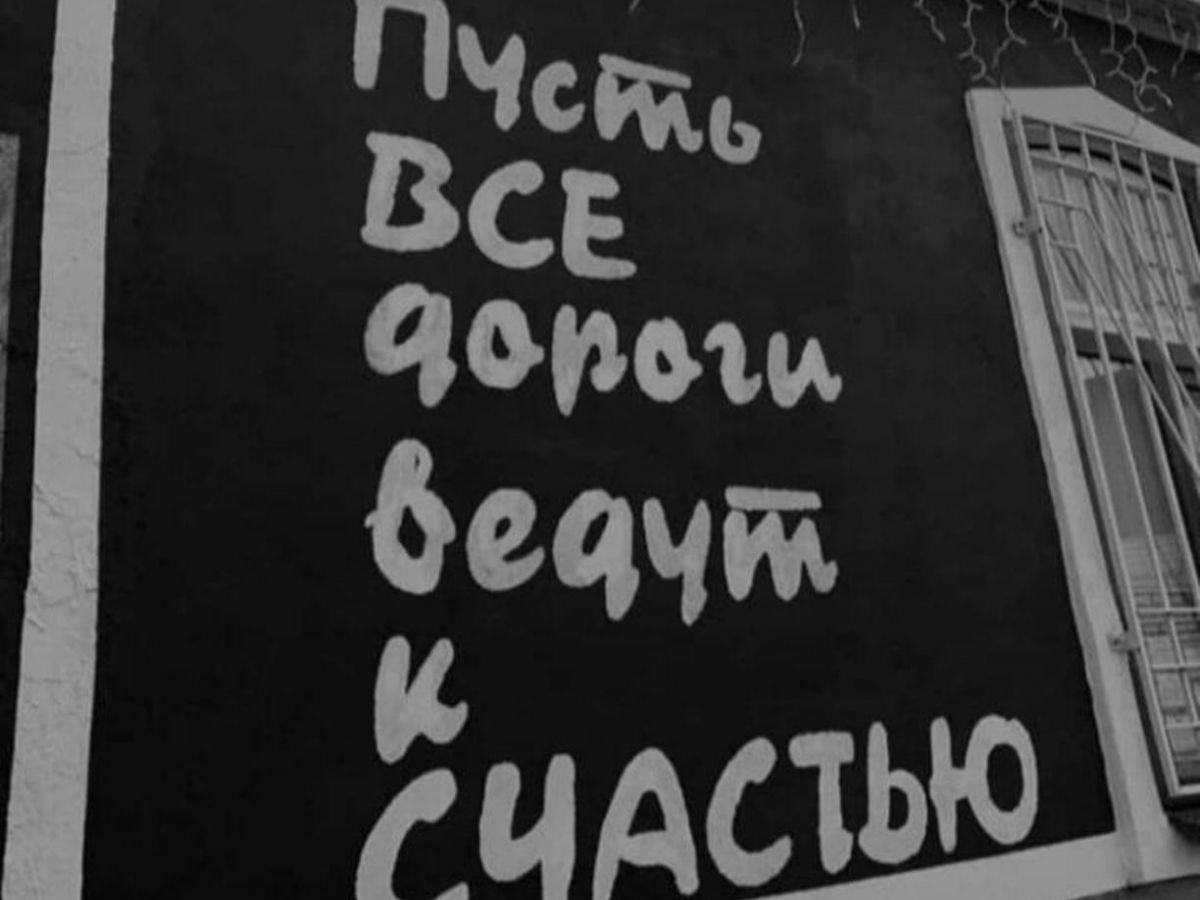 Пусть
ВСЕ
дороги
ведут
к
СЧАСТЬЮ